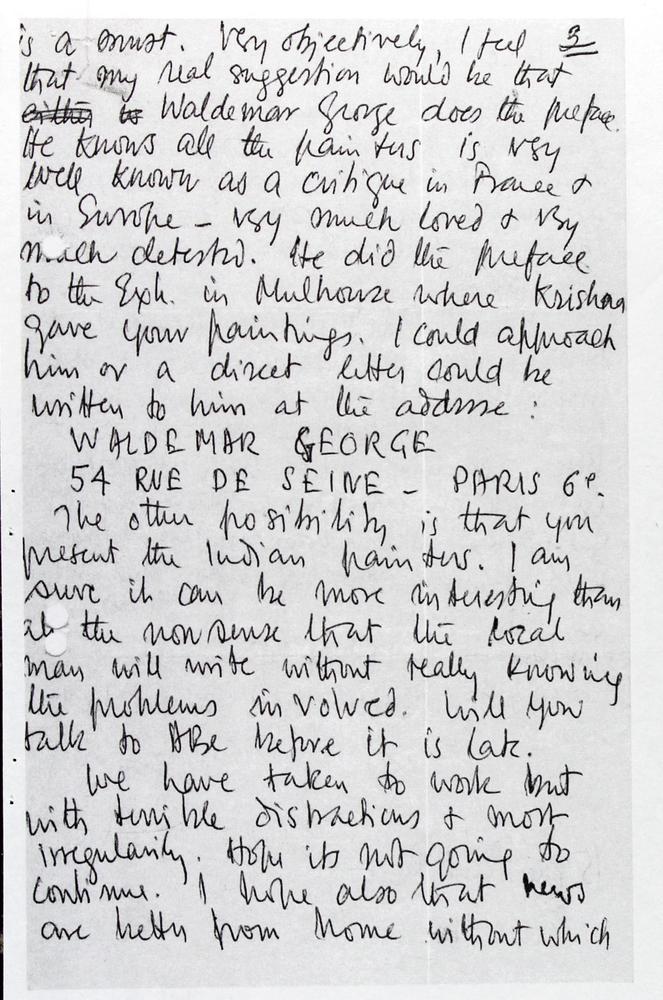 is a must. Very objectively, I feel 3
that my real suggestion would be that
either to Waldemar George does the preface.
He knows all the painters is very
well known as a critique in France &
in Europe – very much loved & very
much detested. He did the preface
to the Exh. in Mulhouse where Krishna
gave your paintings. I could approach
him or a direct letter could be
written to him at the addrsse :
WALDEMAR GEORGE
54 RUE DE SEINE – PARIS 6e.
The other posibility is that you
present the Indian painters. I am
sure it can be more interesting than
all the nonsense that the local
man will write without really knowing
the problems involved. Will you
talk to ABe before it is late.
We have taken to work but
with terrible distractions & most
irregularity. Hope its not going to
continue. I hope also that news
are better from home without which